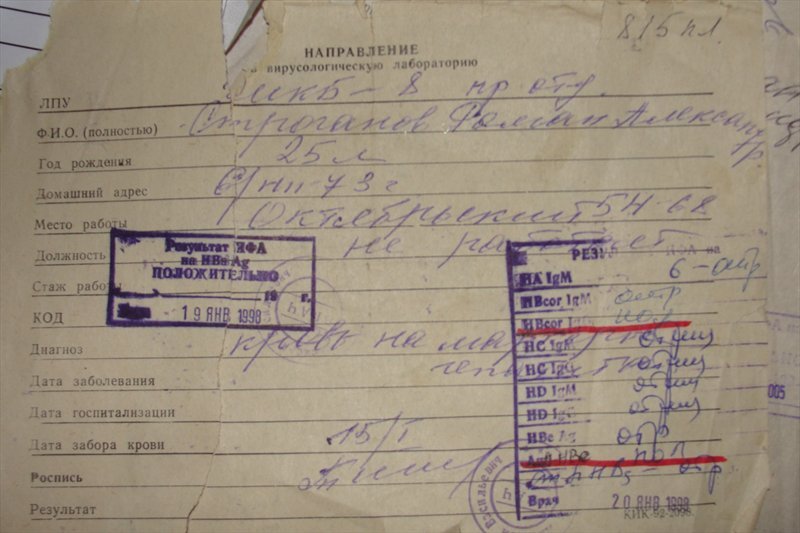 815 пл.
НАПРАВЛЕНИЕ
в вирусологическую лабораторию
ЛПУ
Ф.И.О. (полностью) Строганов Роман Александр
Год рождения 25 л
Домашний адрес 6/III-73 г
Место работы Октябрьский 5Н-68
Должность не работает
Стаж работы
КОД
Диагноз кровь на маркеры
гепатитов
Дата заболевания
Дата госпитализации
Дата забора крови 15/I
Роспись
Результат
Результат ИФА
на HBs Ag
ПОЛОЖИТЕЛЬНО
19 г.
19 ЯНВ 1998
НА IgM
HBcor IgM отр
HBcor пол
HC IgM отриц
HC IgG отриц
HD IgM отриц
HD IgG отриц
HBe Ag отр
HBe пол
отр
Врач 20 ЯНВ 1998
Васильевич
КИК-52-2000.
005